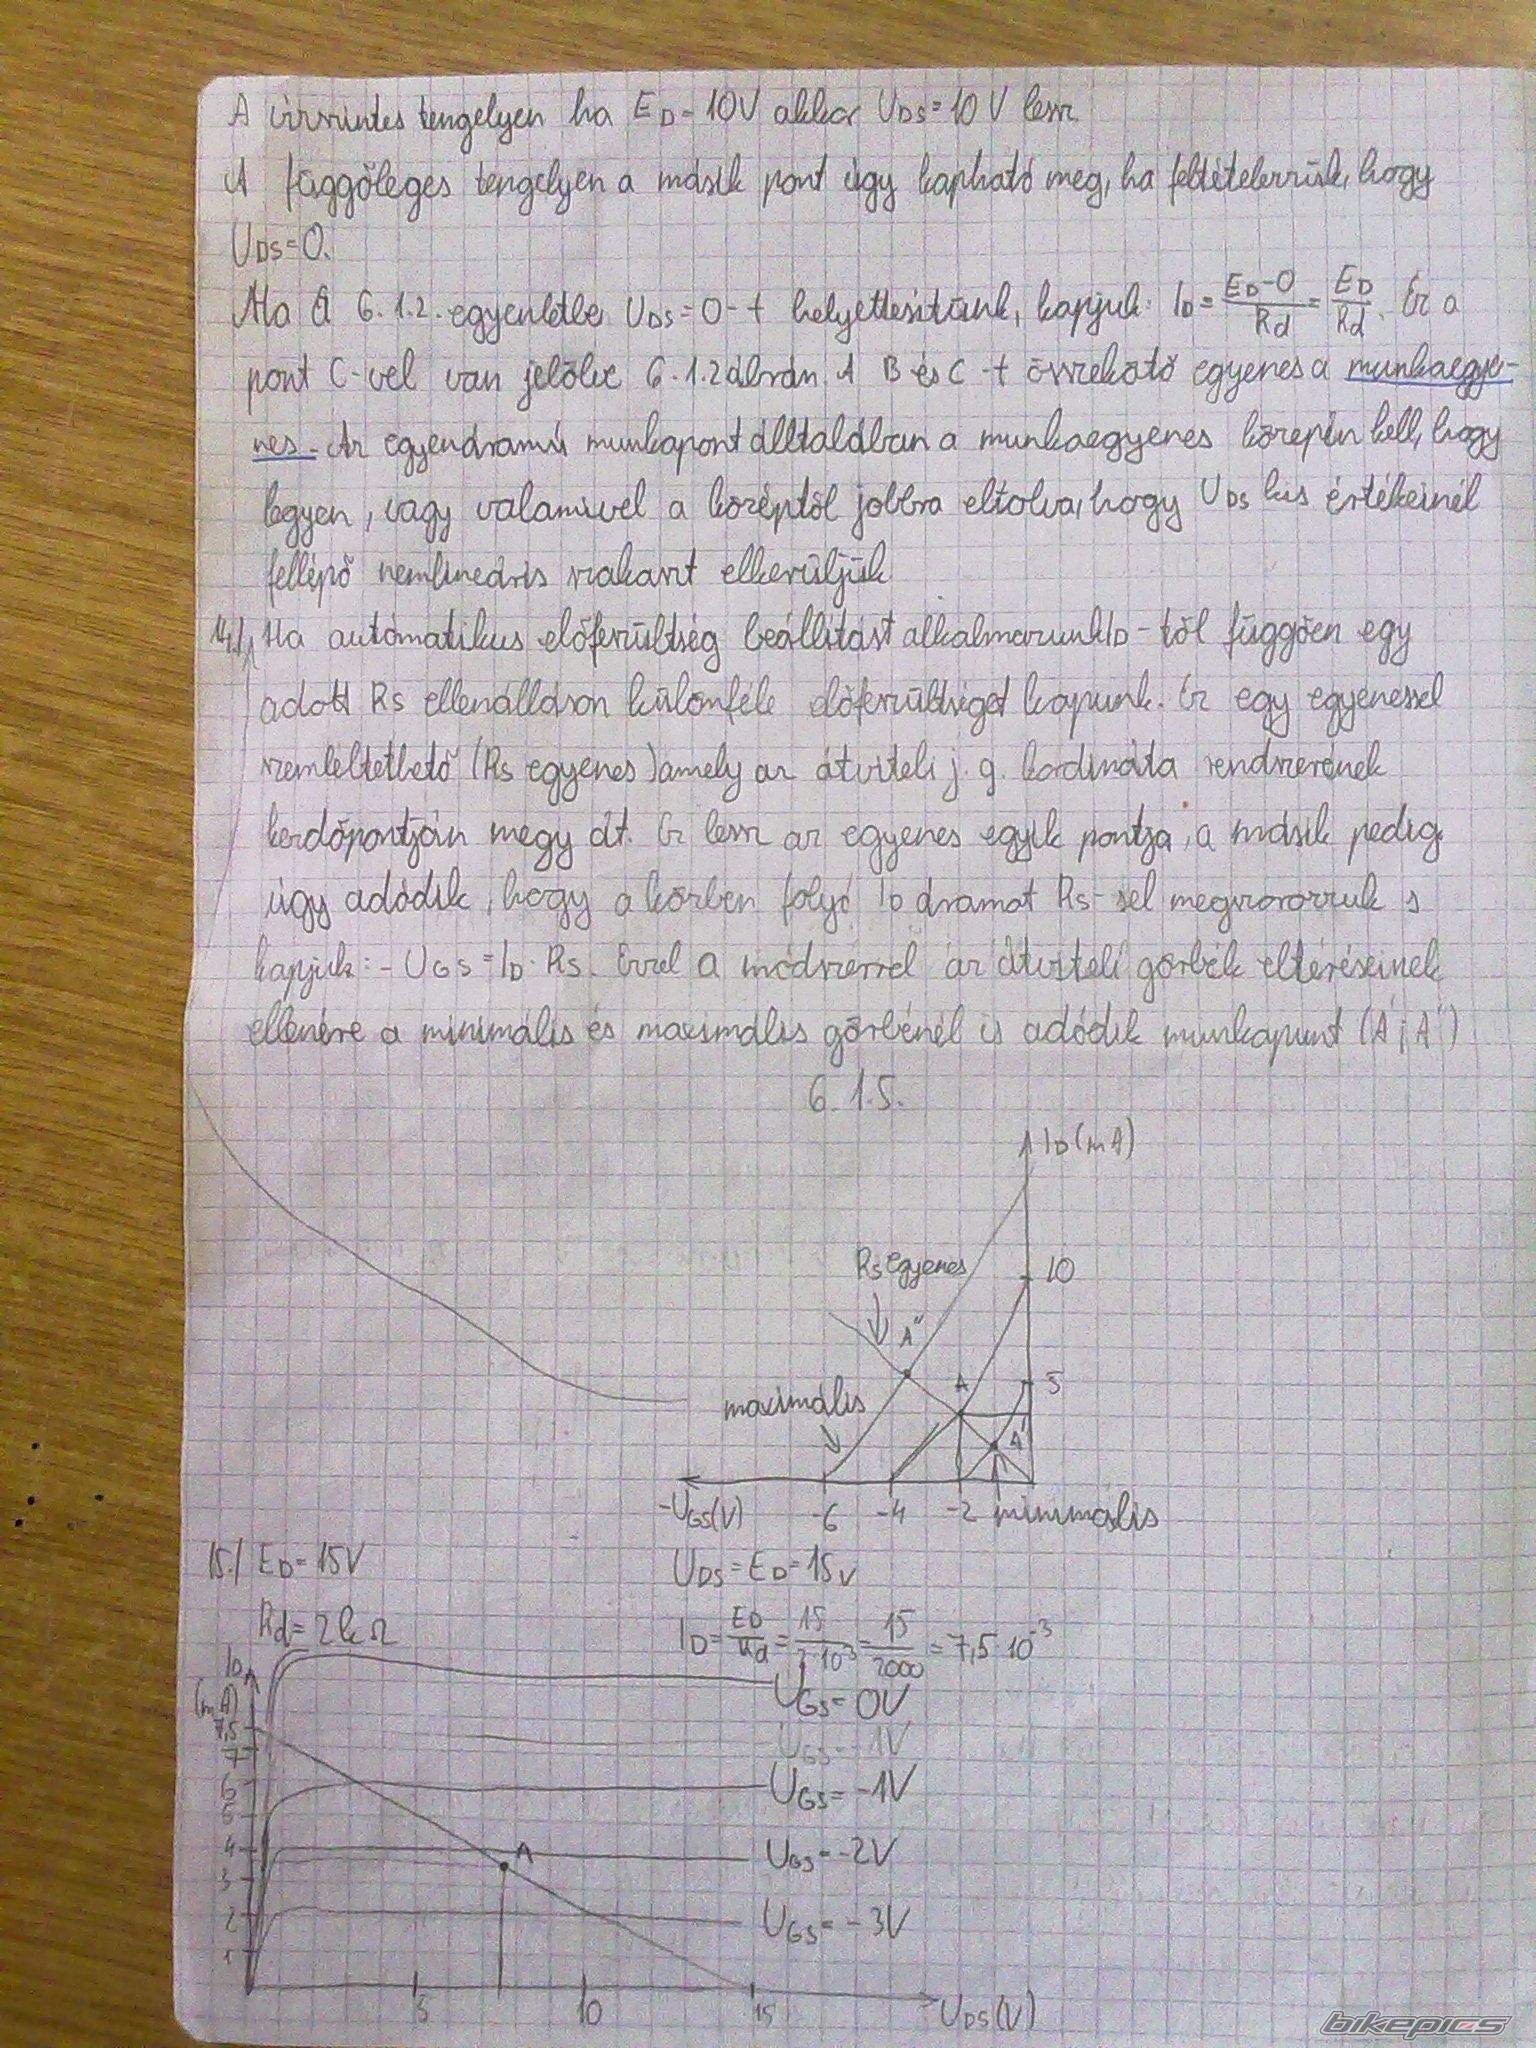 A vízszintes tengelyen ha ED=10V akkor UDS=10V lesz.
A függőleges tengelyen a másik pont úgy kapható meg, ha feltételezzük, hogy
UDS=0.
Ha a 6.1.2. egyenletbe UDS=0-t helyettesítünk, kapjuk: ID=ED-0/Rd=ED/Rd. Ez a
pont C-vel van jelölve 6.1.2 ábrán. A B és C-t összekötő egyenes a munkaegye-
nes. Az egyenáramú munkapont álltalában a munkaegyenes közepén kell, hogy
legyen, vagy valamivel a középtől jobbra eltolva, hogy UDS kis értékeinél
fellépő nemlineáris szakaszt elkerüljük
14./ Ha automatikus előfeszültség beállítást alkalmazunk ID-től függően egy
adott Rs ellenálláson különféle előfeszültséget kapunk. Ez egy egyenessel
szemléltethető (Rs egyenes) amely az átviteli j.g. kordináta rendszerének
kezdőpontján megy át. Ez lesz az egyenes egyik pontja, a másik pedig
úgy adódik, hogy a körben folyó ID áramot Rs-sel megszorozzuk s
kapjuk: -UGS=ID·RS. Ezzel a módszerrel az átviteli görbék eltéréseinek
ellenére a minimális és maximális görbénél is adódik munkapunt (A';A")
6.1.5.
ID(mA)
Rs egyenes
10
A"
maximális
A
5
A'
-UGS(V) -6 -4 -2 minimális
15./ ED=15V
UDS=ED=15V
Rd=2kΩ
ID=ED/Rd=15/2·10³=15/2000=7,5·10-3
ID
(mA)
UGS=0V
7,5
UGS=-1V
7
6
UGS=-1V
5
4
A
UGS=-2V
3
2
UGS=-3V
1
5 10 15 UDS(V)
bikepics